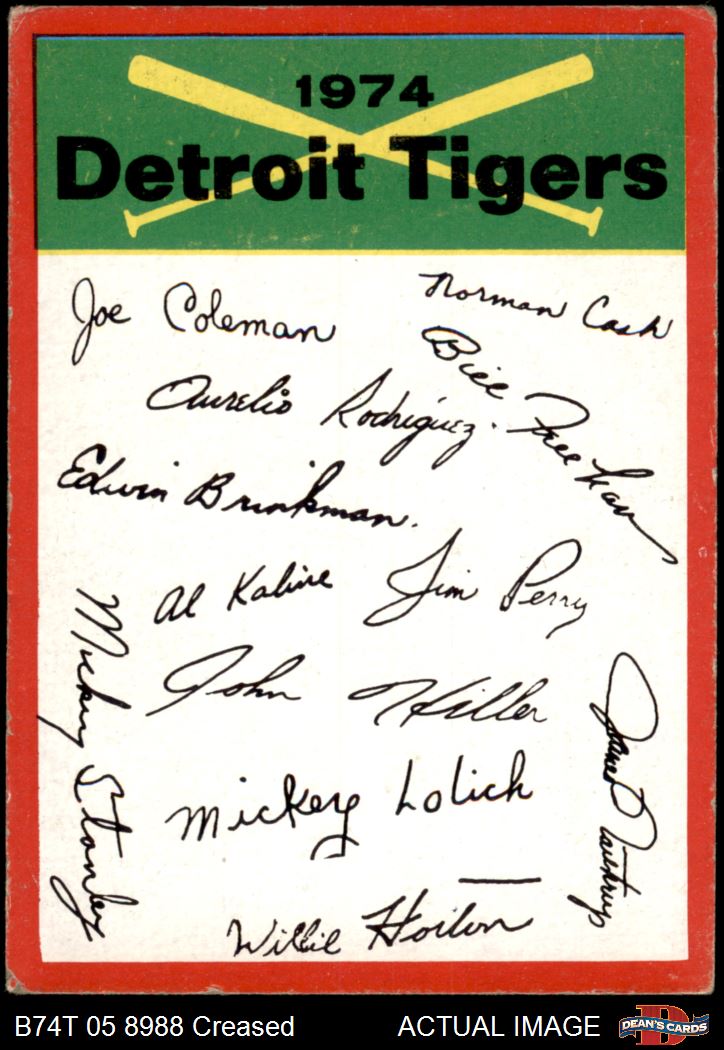 1974
Detroit Tigers
Joe Coleman
Norman Cash
Bill Freehan
Aurelio Rodriguez.
Edwin Brinkman.
Al Kaline
Jim Perry
Mickey Stanley
John Hiller
James Northrup
Mickey Lolich
Willie Horton
B74T 05 8988 Creased
ACTUAL IMAGE
D
DEAN'S CARDS